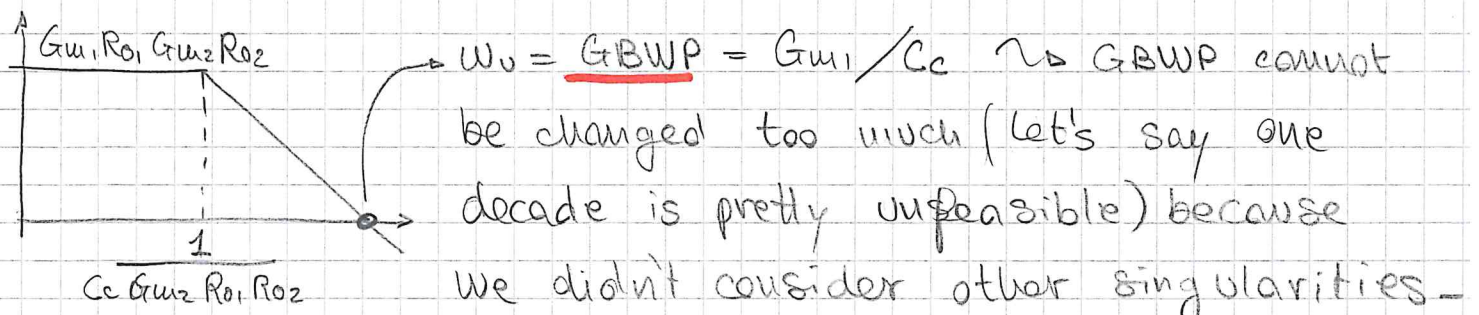 Gm1 Ro1 Gm2 Ro2
ωu = GBWP = Gm1/Cc ⇝ GBWP cannot
be changed too much (let's say one
decade is pretty unfeasible) because
1
Cc Gm2 Ro1 Ro2
we didn't consider other singularities-